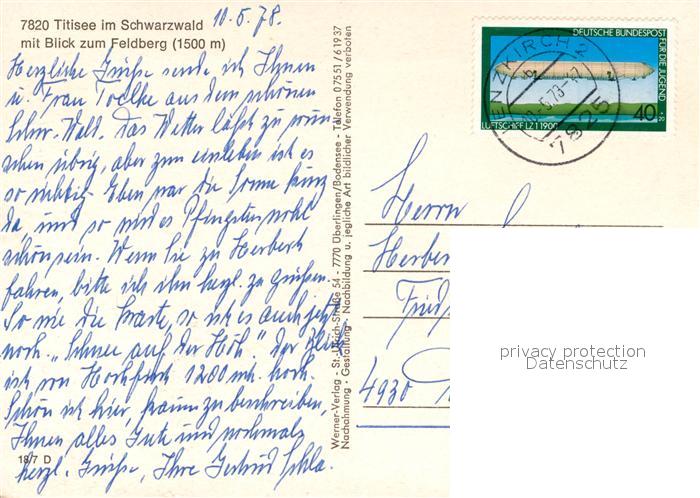 10.5.78.
7820 Titisee im Schwarzwald
mit Blick zum Feldberg (1500 m)
Herzliche Grüße sende ich Ihnen
u. Frau aus dem schönen
Schw. Wald. Das Wetter läßt zu wün
schen übrig, aber zum einleben ist es
so richtig. Eben war die Sonne
da und so wird es Pfingsten wohl
schön sein. Wenn Sie zu Herbert
fahren, bitte ich ihn herzl. zu grüßen.
So wie die Karte, so ist es auch jetzt
noch. "Schnee auf der Höh." Der
ist von 1200 mtr. hoch.
Schön ist hier, kaum zu beschreiben,
Ihnen alles Gute und nochmals
herzl. Grüße, Ihre
18/7 D
Werner-Verlag - St.-Ulrich-Straße 54 - 7770 Überlingen/Bodensee - Telefon 0 75 51 / 6 19 37
Nachahmung - Gestaltung - Nachbildung u. jegliche Art bildlicher Verwendung verboten
DEUTSCHE BUNDESPOST
FÜR DIE JUGEND
40
+20
LUFTSCHIFF LZ 1 1900
LENZKIRCH 2
7825
Herrn
Herber
4930
privacy protection
Datenschutz